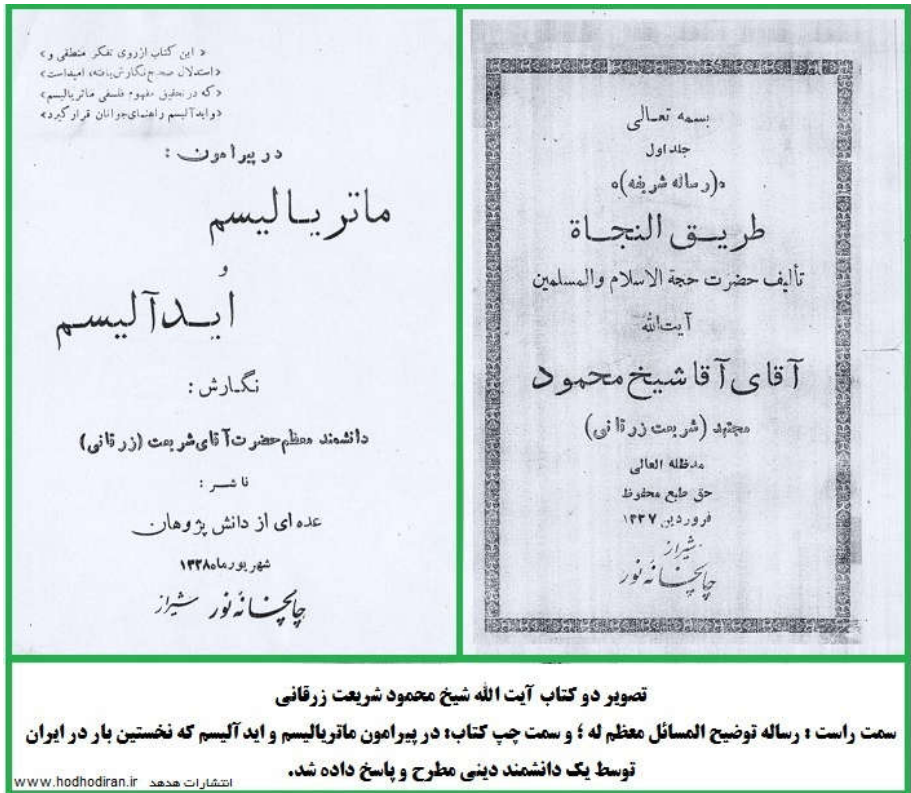 بسمه تعالی
جلد اول
«(رساله شریفه)»
طریق النجاة
تألیف حضرت حجة الاسلام والمسلمین
آیت‌الله
آقای آقا شیخ محمود
مجتهد (شریعت زرقانی)
مدظله العالی
حق طبع محفوظ
فروردین ۱۳۳۷
شیراز
چاپخانه نور
« این کتاب از روی تفکر منطقی و »
«استدلال صحیح نگارش یافته، امیداست»
«که در تحقیق مفهوم فلسفی ماتریالیسم»
«و ایدآلیسم راهنمای جوانان قرار گیرد»
در پیرامون :
ماتریالیسم
و
ایدآلیسم
نگارش :
دانشمند معظم حضرت آقای شریعت (زرقانی)
ناشر :
عده ای از دانش پژوهان
شهریورماه ۱۳۲۸
چاپخانه نور شیراز
تصویر دو کتاب آیت الله شیخ محمود شریعت زرقانی
سمت راست : رساله توضیح المسائل معظم له ؛ و سمت چپ کتاب: در پیرامون ماتریالیسم و ایدآلیسم که نخستین بار در ایران
توسط یک دانشمند دینی مطرح و پاسخ داده شد.
انتشارات هدهد www.hodhodiran.ir